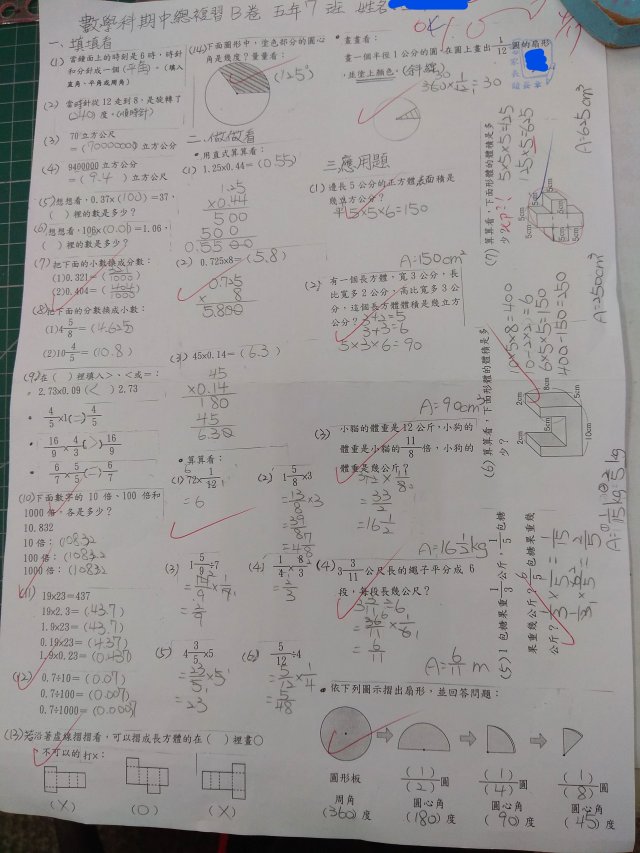 數學科期中總複習B卷 五年7班 姓名
一、填填看
(1) 當鐘面上的時刻是6時,時針
和分針成一個(平角)。(填入
直角、平角或周角)
(2) 當時針從12走到8,是旋轉了
(240)度。(順時針)
(3) 70立方公尺
=(70000000)立方公分
(4) 9400000立方公分
=(9.4)立方公尺
(5) 想想看,0.37×(100)=37,
( )裡的數是多少?
(6) 想想看,106×(0.01)=1.06,
( )裡的數是多少?
(7) 把下面的小數換成分數:
(1) 0.321=(321/1000)
(2) 0.404=(404/1000)
(8) 把下面的分數換成小數:
(1) 4 5/8=(4.625)
(2) 10 4/5=(10.8)
(9) 在( )裡填入>、<或=:
2.73×0.09(<)2.73
4/5×1(=)4/5
16/9×4/3(>)16/9
6/7×5/5(=)6/7
(10) 下面數字的10倍、100倍和
1000倍,各是多少?
10.832
10倍:(108.32
100倍:(1083.2
1000倍:(10832
(11) 19×23=437
19×2.3=(43.7)
1.9×23=(43.7)
0.19×23=(4.37)
1.9×0.23=(0.437)
(12) 0.7÷10=(0.07)
0.7÷100=(0.007)
0.7÷1000=(0.0007)
(13) 若沿著虛線摺摺看,可以摺成長方體的在( )裡畫○
不可以的打×:
(X) (O) (X)
(14) 下面圖形中,塗色部分的圓心
角是幾度?量量看:
(125°)
二、做做看
用直式算算看:
(1) 1.25×0.44=(0.55)
1.25
×0.44
500
500
0.5500
(2) 0.725×8=(5.8)
0.725
× 8
5.800
(3) 45×0.14=(6.3)
45
×0.14
180
45
6.30
算算看:
(1) 72×1/12
=6
(2) 1 5/8×3
=13/8×3
=39/8
=4 7/8
(3) 1 5/9÷7
=2/9
(4) 1/4×8/3
=2/3
(5) 4 3/5×5
=23/5×5
=23
(6) 5/12÷4
=5/12×1/4
=5/48
畫畫看:
畫一個半徑1公分的圓,在圓上畫出1/12圓的扇形
,並塗上顏色。(斜線)
360×1/12=30
三、應用題
(1) 邊長5公分的正方體表面積是
幾立方公分?
5×5×6=150
A=150cm²
(2) 有一個長方體,寬3公分,長
比寬多2公分,高比寬多3公
分,這個長方體體積是幾立方
公分?
3+2=5
3+3=6
5×3×6=90
A=90cm³
(3) 小貓的體重是12公斤,小狗的
體重是小貓的11/8倍,小狗的
體重是幾公斤?
=33/2
=16 1/2
A=16 1/2kg
(4) 3 3/11公尺長的繩子平分成6
段,每段長幾公尺?
3 3/11÷6
=36/11×1/6
=6/11
A=6/11 m
(5) 1包糖果重1/3公斤,1/5包糖
果重幾公斤?6/5包糖果重幾
公斤?
1/3×1/5=1/15
1/3×6/5=2/5
(6) 算算看,下面形體的體積是多
少?
10×5×8=400
10-2×2=6
6×5×5=150
400-150=250
A=250cm³
2cm
8cm
5cm
2cm
10cm
(7) 算算看,下面形體的體積是多
少?
5×5×5=125
125×5=625
A=625cm³
5cm
5cm
5cm
5cm
依下列圖示摺出扇形,並回答問題:
圓形板 (1)/(2)圓 (1)/(4)圓 (1)/(8)圓
周角 圓心角 圓心角 圓心角
(360)度 (180)度 (90)度 (45)度